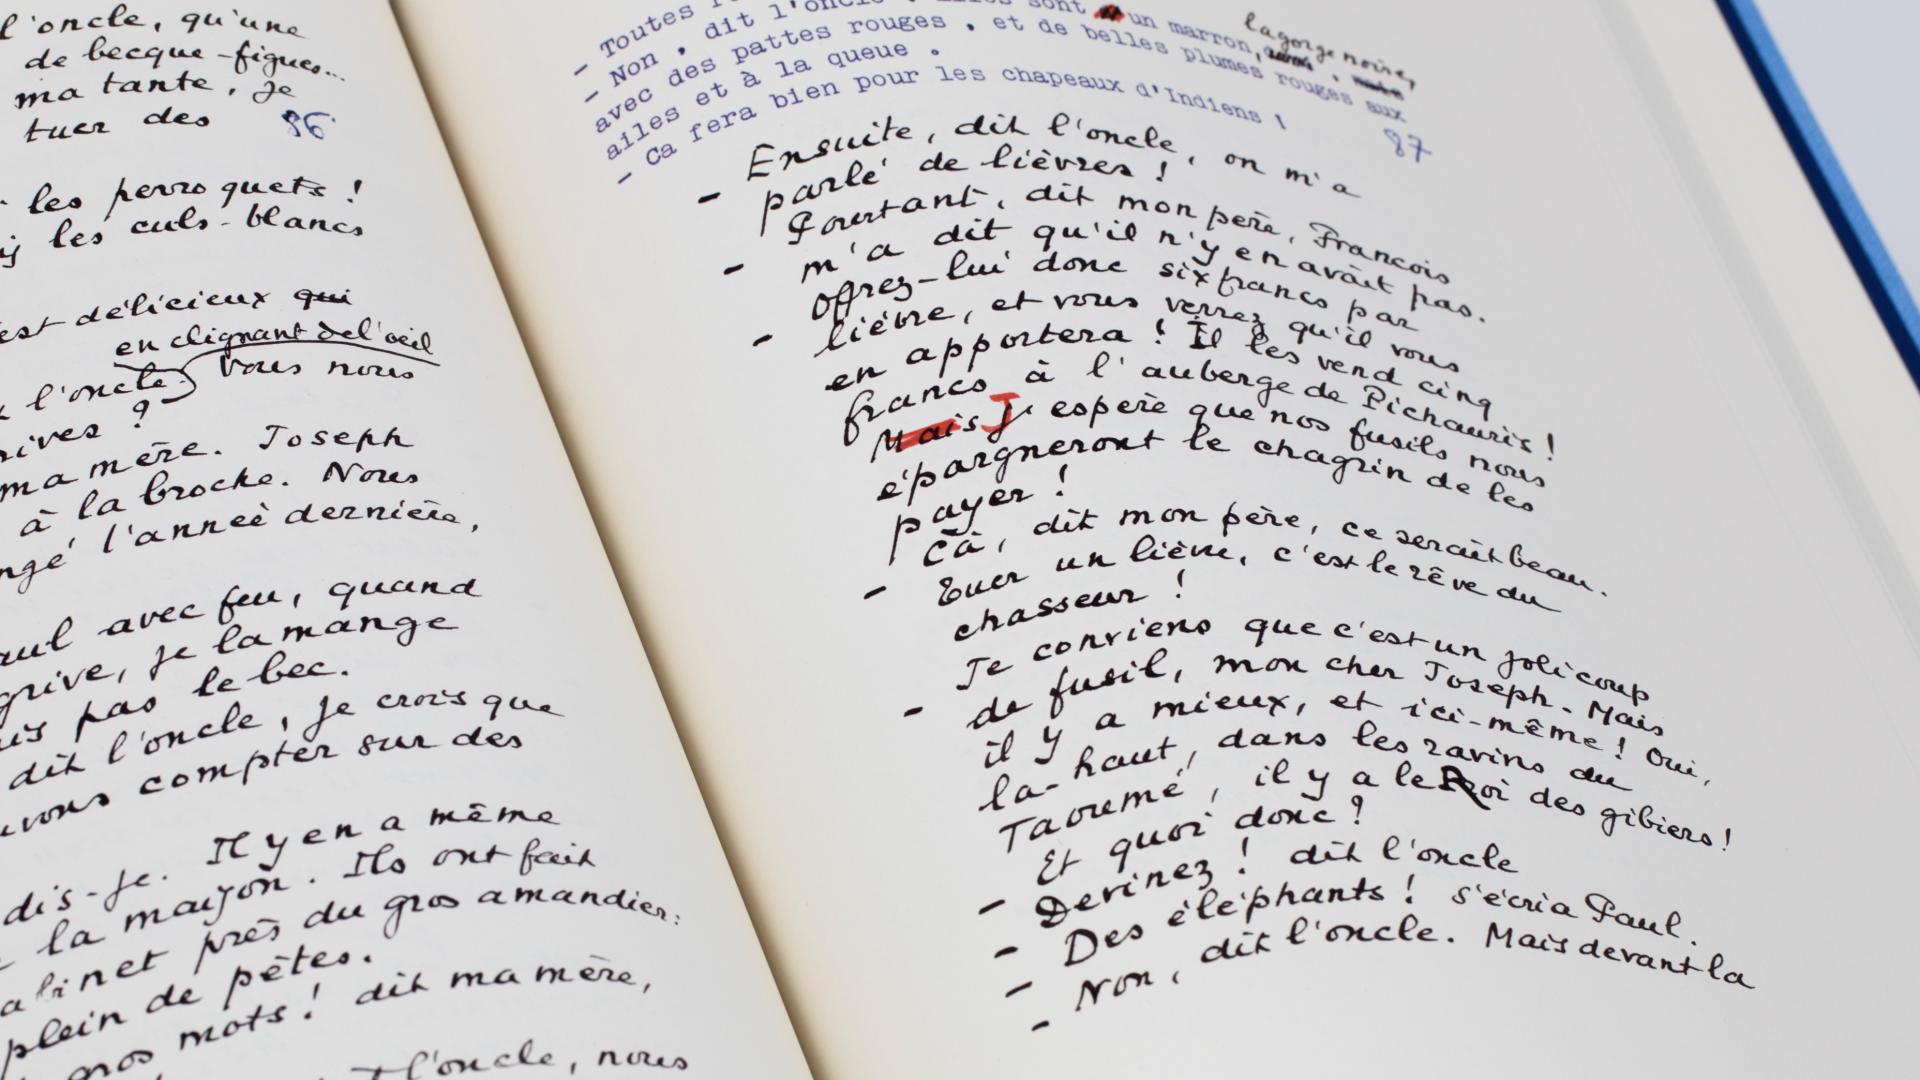 l'oncle, qu'une
de becque-figues...
ma tante, je
tuer des
86
les perroquets !
les culs-blancs
est délicieux qui
en clignant de l'oeil
l'oncle. Vous nous
?
ma mère. Joseph
à la broche. Nous
l'année dernière,
avec feu, quand
grive, je la mange
pas le bec.
dit l'oncle, je crois que
compter sur des
dis-je. Il y en a même
la maison. Ils ont fait
près du gros amandier:
plein de pètes.
gros mots ! dit ma mère,
l'oncle, nous
- Toutes
- Non, dit l'oncle. sont un marron, la gorge noire,
avec des pattes rouges, et de belles plumes rouges aux
ailes et à la queue.
- Ca fera bien pour les chapeaux d'Indiens !
87
- Ensuite, dit l'oncle, on m'a
parlé de lièvres !
- Pourtant, dit mon père, François
m'a dit qu'il n'y en avait pas.
- Offrez-lui donc six francs par
lièvre, et vous verrez qu'il vous
en apportera ! Il les vend cinq
francs à l'auberge de Pichauris !
Mais Je espère que nos fusils nous
épargneront le chagrin de les
payer !
- Cà, dit mon père, ce serait beau.
Tuer un lièvre, c'est le rêve du
chasseur !
- Je conviens que c'est un joli coup
de fusil, mon cher Joseph. Mais
il y a mieux, et ici-même ! Oui,
la-haut, dans les ravins du
Taoumé, il y a le Roi des gibiers !
- Et quoi donc ?
- Devinez ! dit l'oncle
- Des éléphants ! s'écria Paul.
- Non, dit l'oncle. Mais devant la